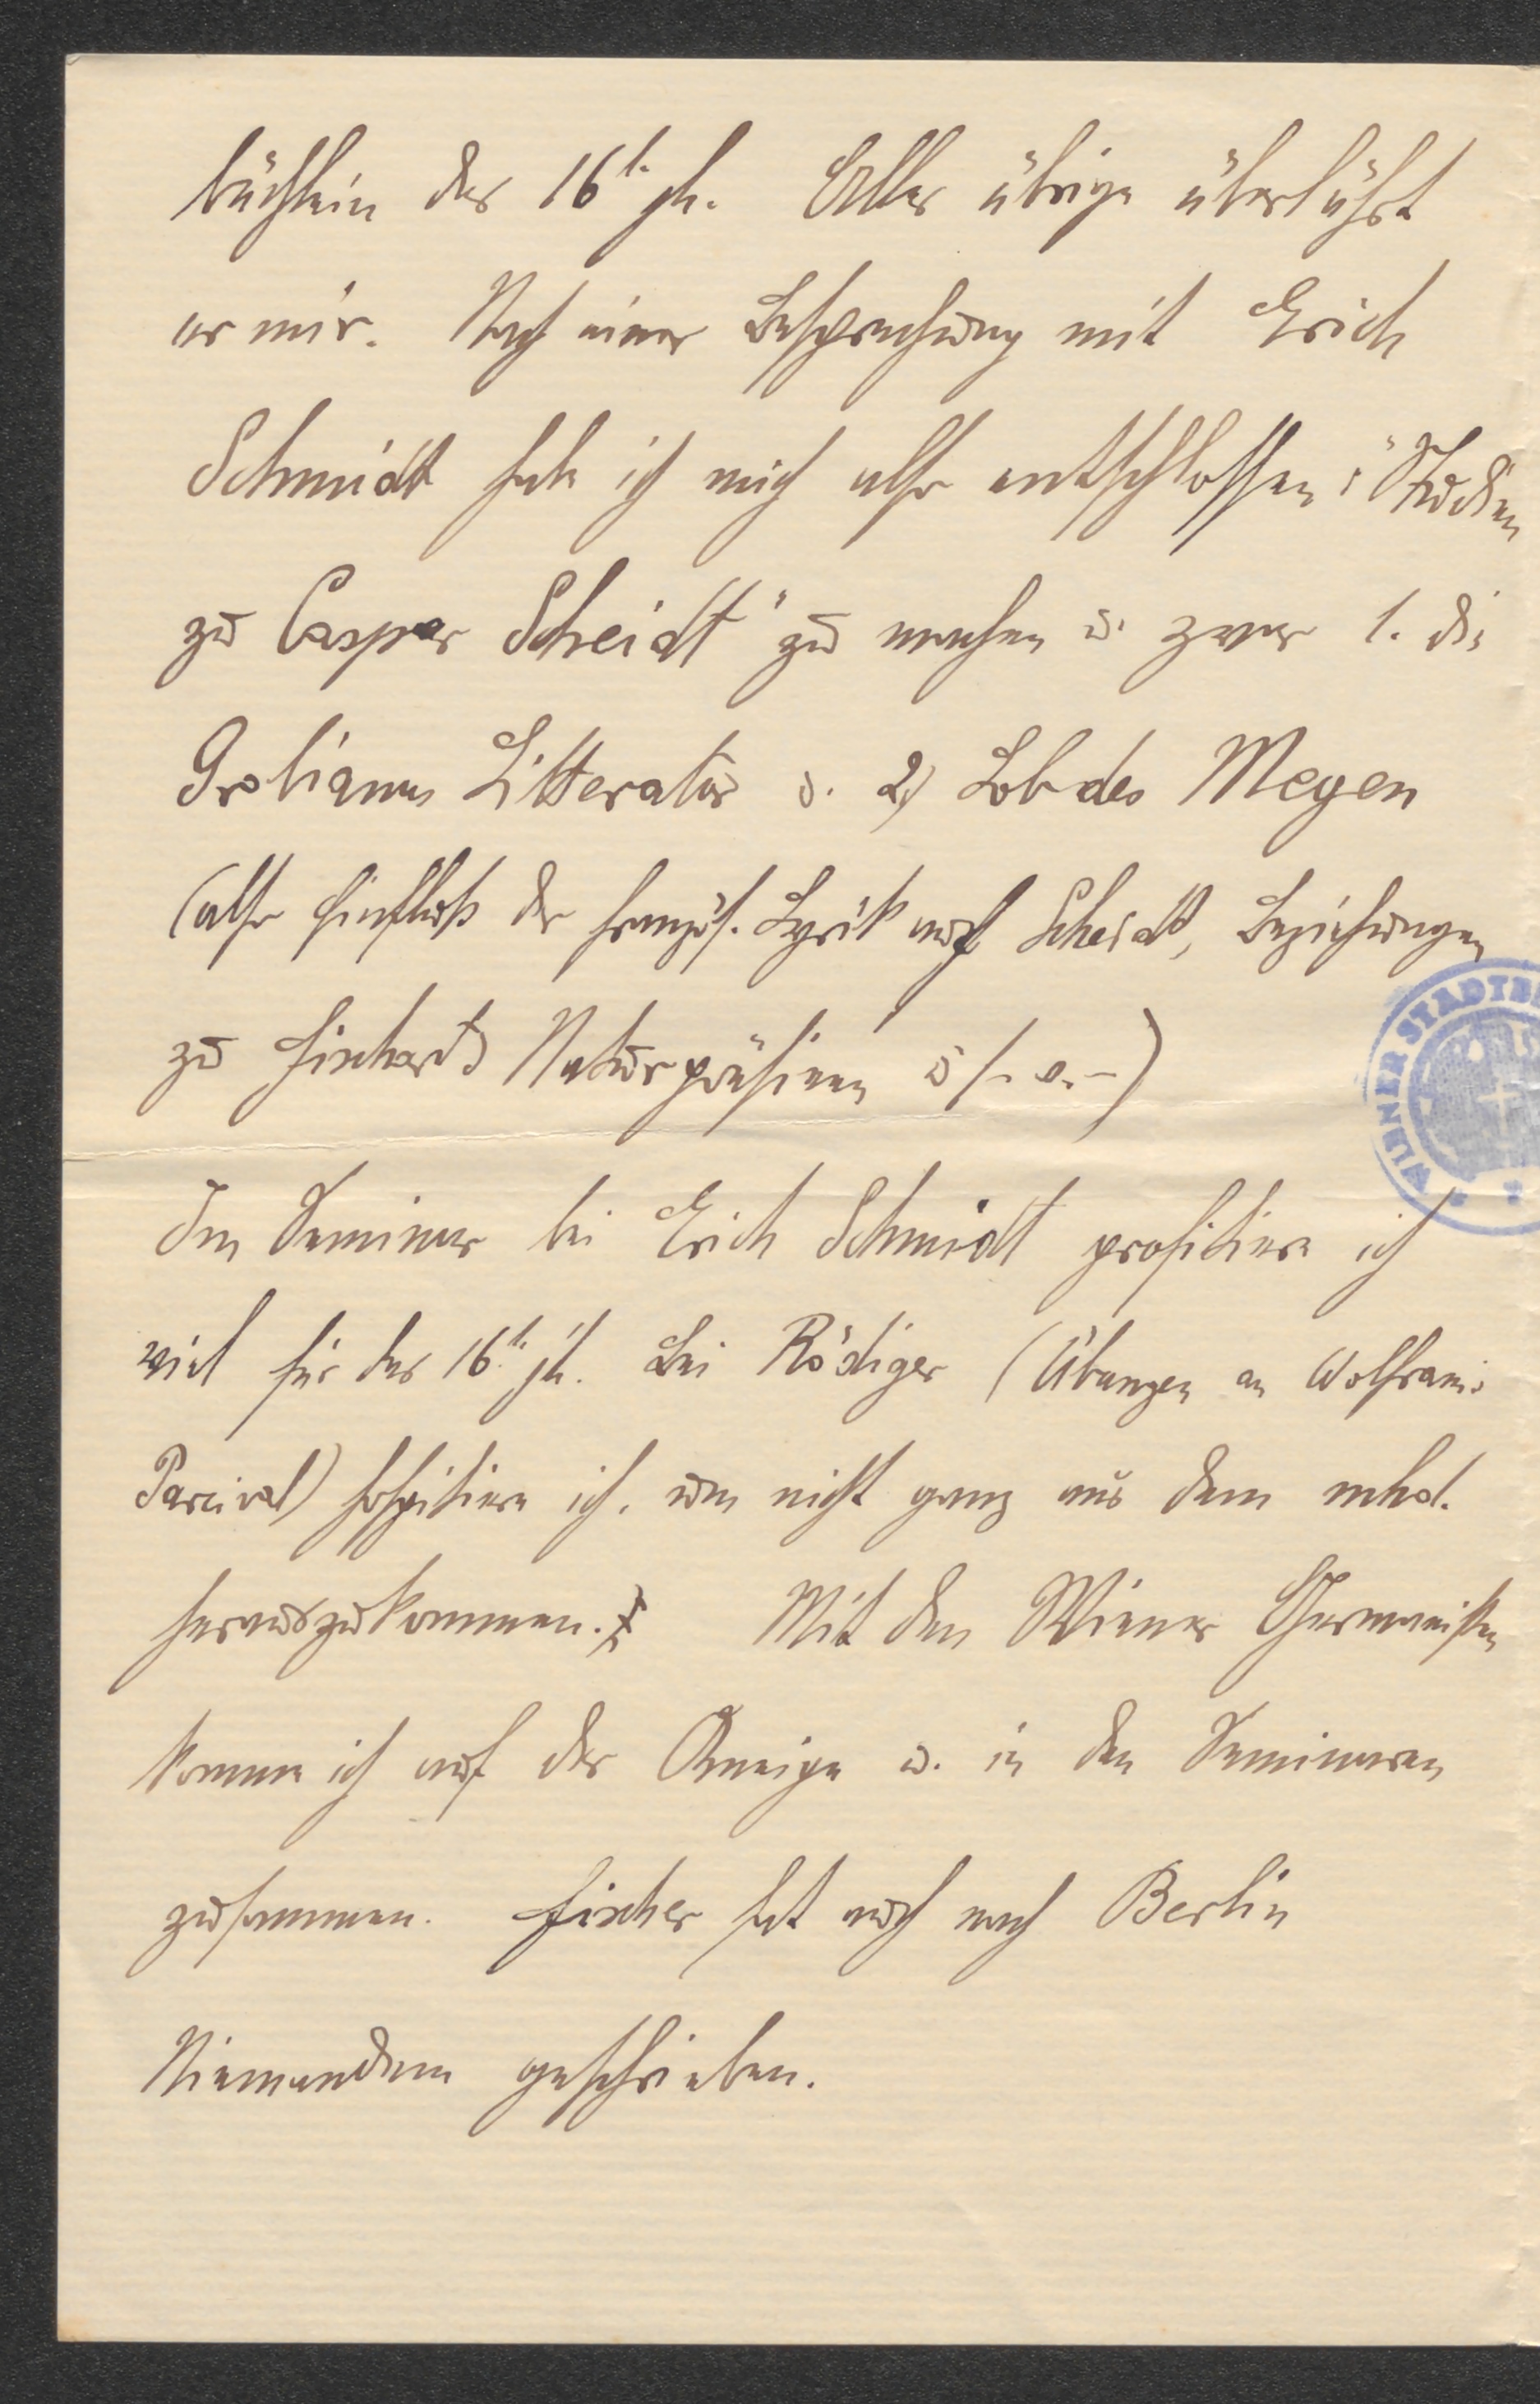 büchlein des 16t. Jh. Alles übrige überläßt
er mir. Nach einer Besprechung mit Erich
Schmidt habe ich mich also entschlossen: "Studien
zu Caspar Scheidt" zu machen u. zwar 1. die
Grobianus Litteratur u. 2) Lob des Meyen
(also Einfluß der französ. Lyrik auf Scheidt, Beziehungen
zu Fischarts u. s. w.)
Im Seminar bei Erich Schmidt profitiere ich
viel für das 16te Jh. Bei Rödiger (Übungen an Wolframs
Parcival) hospitiere ich, um nicht ganz aus dem mhd.
herauszukommen. Mit den Wiener Germanisten
komme ich auf der Kneipe u. in den Seminaren
zusammen. Fischer hat noch nach Berlin
Niemandem geschrieben.
WIENER STADTB